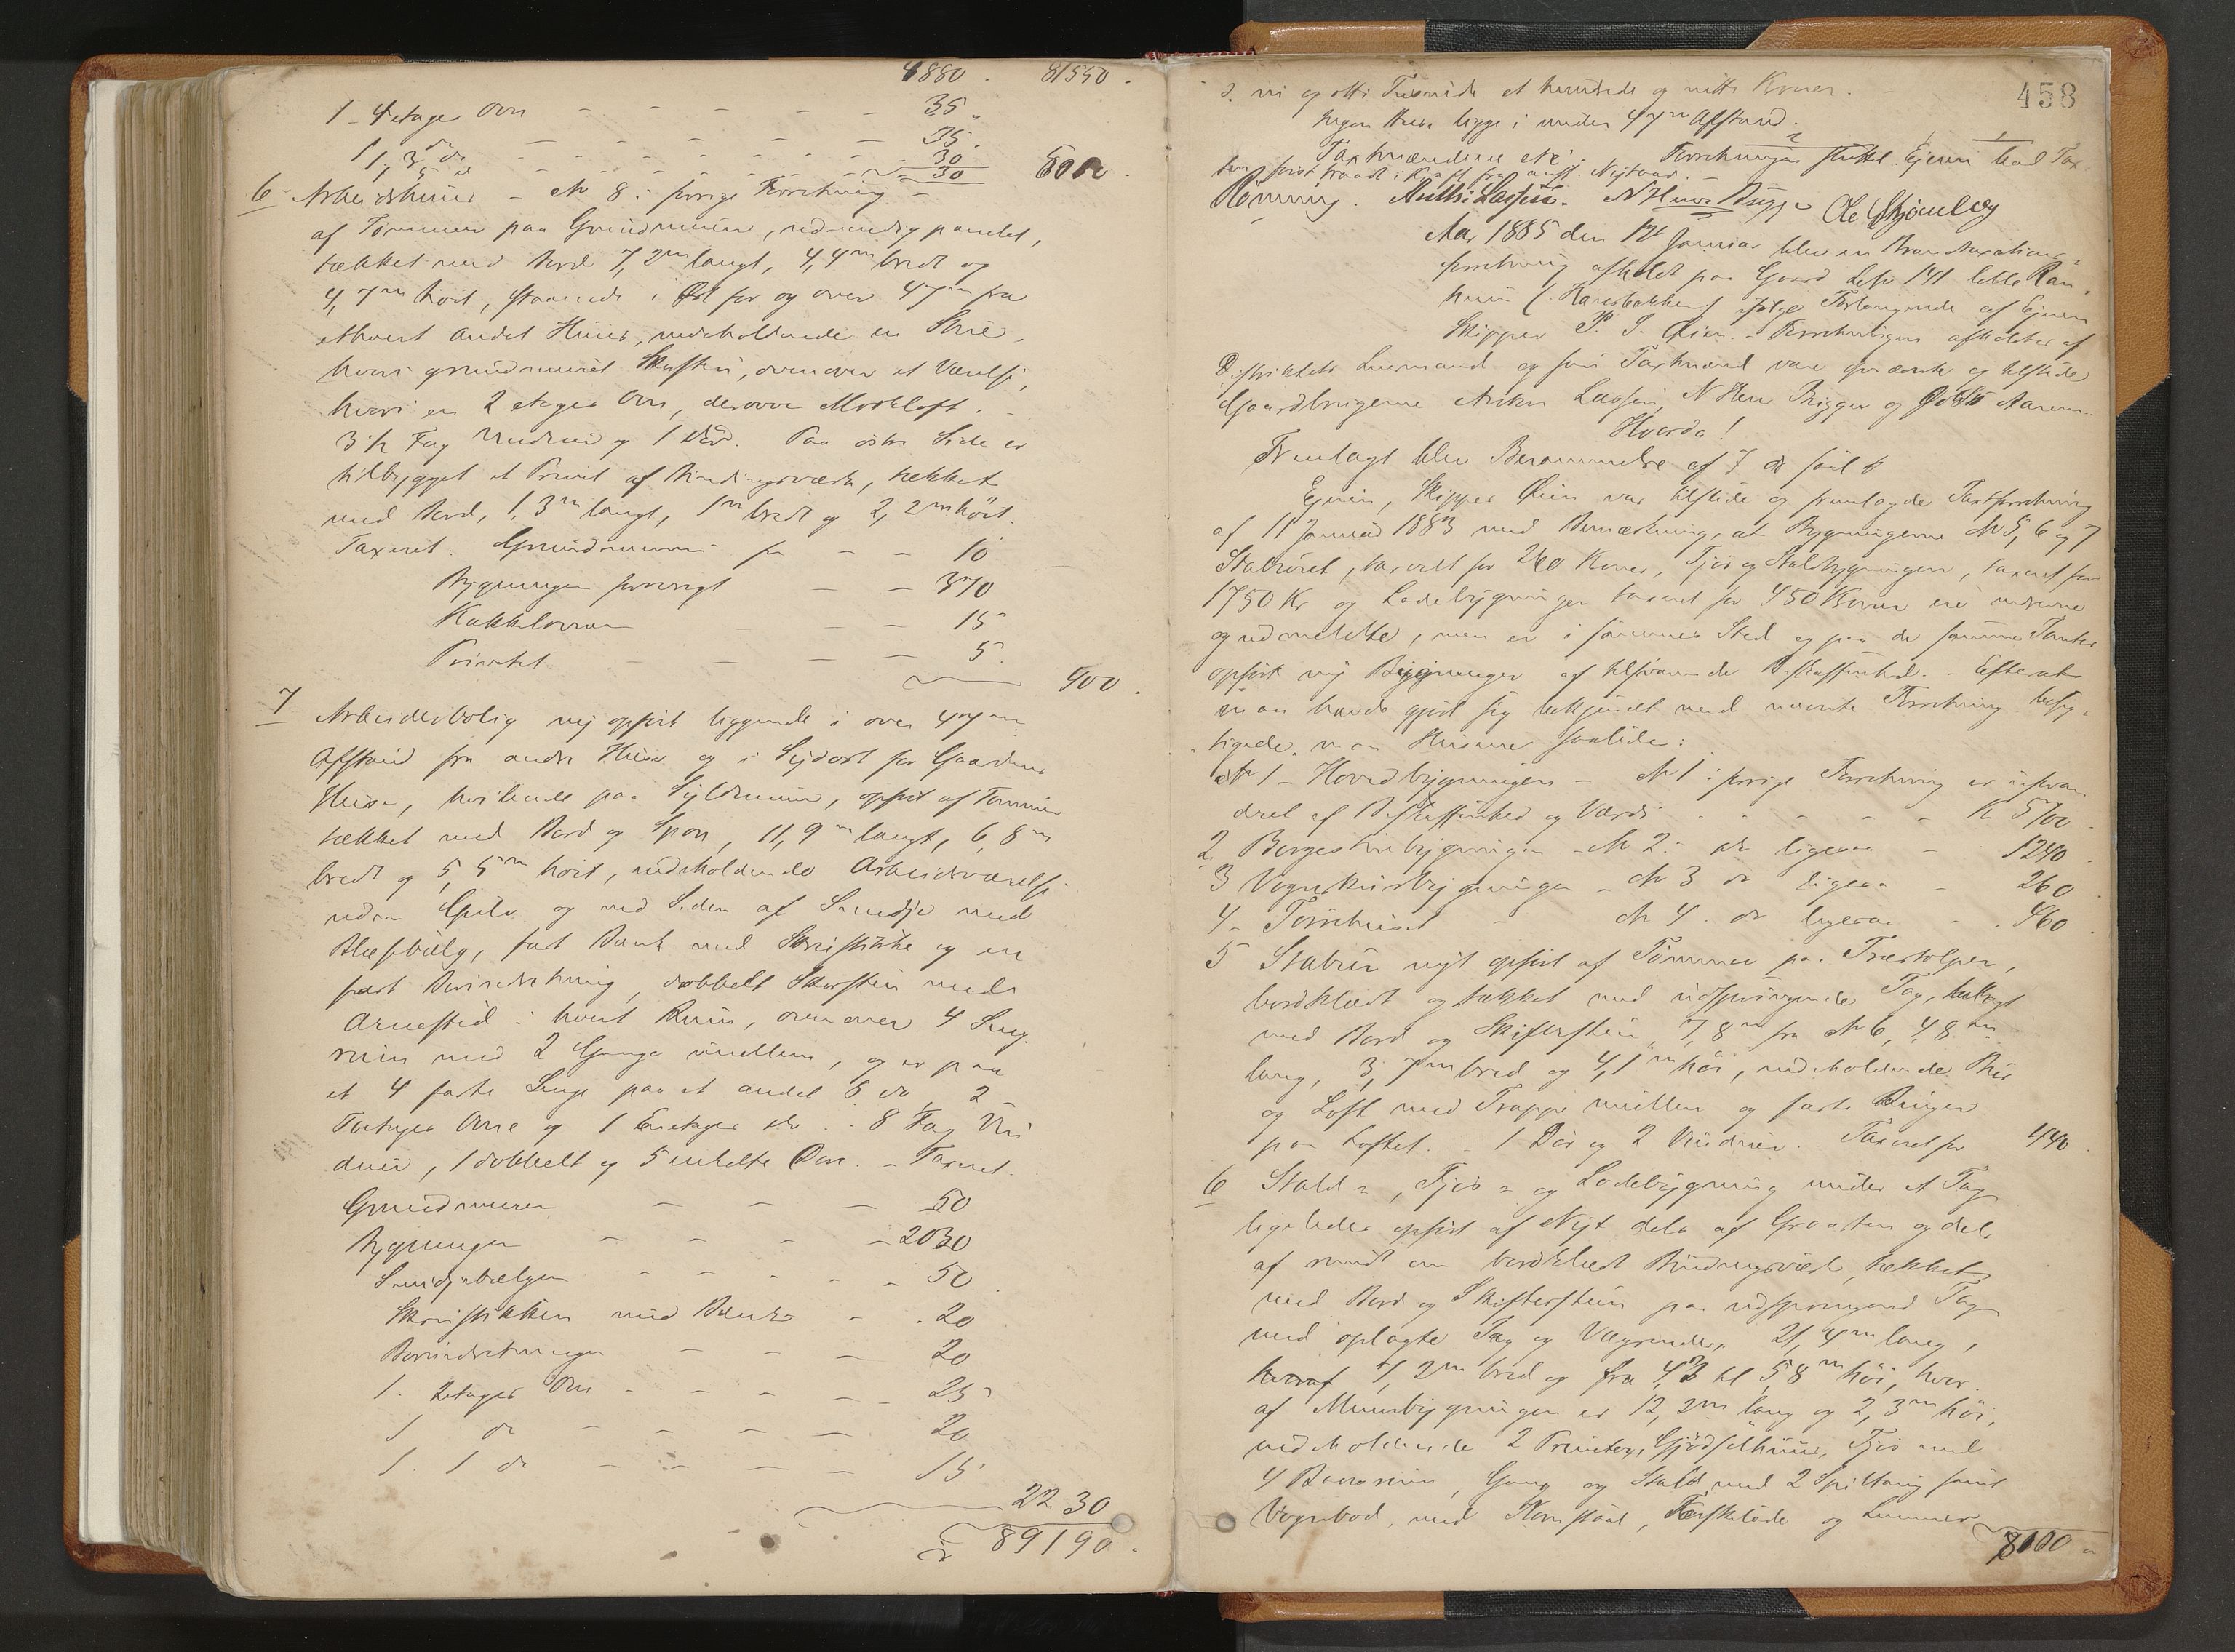 4880. 81550.
1 - 4 etages Ovn - - - - 35.
1 do - - - - 35.
1. 3 do - - - - 30
30 5000.
6 Arbeidshuus - No 8 i forrige Forretning -
af Tømmer paa Grundmuur, udvendig panelet,
tækket med Bord 7,2m langt, 4,4m bredt og
4,7m høit, staaende i Øst for og over 47m fra
ethvert andet Huus, indeholdende en Stue,
hvori grundmuret Skorsten, ovenover et Værelse,
hvori en 2 etages Ovn, derover Mørkloft. -
3 1/2 Fag Vinduer og 1 Dør. Paa østre Side er
tilbygget et Privet af Bindingsværk, tækket
med Bord, 1,3m langt, 1m bredt og 2,2m høit.
Taxeret: Grundmuren for - - 10
Bygningen forøvrigt - - 370
Kakkelovnen - - - 15
Privetet - - - 5.
400.
7 Arbeiderbolig ny opført liggende i over 47m
Afstand fra andre Huse og i Sydost for Gaardens
Huse, hvilende paa Syldmuur, opført af Tømmer
tækket med Bord og Spon, 11,9m langt, 6,8m
bredt og 5,5m høit, indeholdende Arbeidsværelse
uden Gulv og ved Siden af Smedje med
Blæsebælg, fast Bænk med Skruestikke og en
fast Boreindretning, dobbelt Skorsten med
Arnested i hvert Rum, ovenover 4 Senge
rum med 2 Gange imellem, og er paa
et 4 faste Senge paa et andet 3 do, 2
Toetages Ovne og 1 Enetages do. - 8 Fag Vin
duer, 1 dobbelt og 5 enkelte Døre. - Taxeret.
Grundmuren - - - 50
Bygningen - - - - 2030
Smedjebælgen - - - - - 50.
Skruestikken med Bænk - - 20
Boreindretningen - - - 20
1. 2etages Ovn - - - - 25
1 do - - - - 20
1. 1 do - - - - 15
2230
89190.
458
2. ni og otti Tusinde et hundrede og nitti Kroner. -
Ingen Huse ligge i under 47m Afstand.
Taxtmændene etc. Forretningen sluttet. Ejeren bad Tax-
ten først traadt i Kraft fra anst. Nytaar. -
Rønning. Anth: Lassen. N Hans Bugge Ole Skjønberg
Aar 1885 den 12t Januar blev en Brandtaxations-
forretning afholdt paa Gaard Løbe 141 lille Ran-
heim (Hansbakken) ifølge Forlangende af Ejeren
Skipper P. J. Øien. - Forretningen afholdtes af
Distriktets Lensmand og som Taxtmænd vare opnævnte og tilstede
Gaardbrugerne Anton Lassen, N Hans Bugge og
Hvorda!
Fremlagt blev Berammelse af 7 ds saal.
Ejeren, Skipper Øien var tilstede og fremlagde Taxtforretning
af 11 Januar 1883 med Bemærkning, at Bygningerne No 5, 6 og 7
Stabburet, taxeret for 260 Kroner, Fjøs og Staldbygningen, taxeret for
1750 Kr og Ladebygningen taxeret for 450 Kroner ere nedrevne
og udmeldte, men er i sammes Sted og paa de samme Tomter
opført ny Bygninger af tilsvarende Beskaffenhed. - Efterat
man havde gjort sig bekjendt med nævnte Forretning besig-
tigede man Husene saaledes:
No 1 - Hovedbygningen - No 1 i forrige Forretning er uforan
dret af Beskaffenhed og Værdi - - - - K 5700.
2 Borgestuebygningen - No 2 - do ligesaa - 1240.
3 Vognskursbygningen - No 3 do ligesaa - 260.
4 - Tørrehuset - No 4. do ligesaa - 460.
5 Stabur nyt opført af Tømmer paa Træstolper,
bordklædt og tækket med udspringende Tag, belagt
med Bord og Skifersten, 7,8m fra No 6, 4,8m
lang, 3,7m bred og 4,1m høi, indeholdende Bur
og Loft med Trappe imellem og faste Binger
paa Loftet. - 1 Dør og 2 Vinduer. Taxeret for 440.
6 Stald-, Fjøs- og Ladebygning under et Tag
ligeledes opført af Nyt dels af Graasten og dels
af rundt om bordklædt Bindingsværk, tækket
med Bord og Skifersten paa udspringende Tag
med oplagte Tag og Vægrender, 21,4m lang,
7,2m bred og fra 4,3 til 5,8m høi, hvor-
af Muurbygningen er 12,2m lang og 2,3m høi,
indeholdende 2 Priveter, Gjødselhuus, Fjøs med
4 Baasrum, Gang og Stald med 2 Spiltoug samt
Vognbod, med Kornstaal, Tærskelade og Lemmer
8100